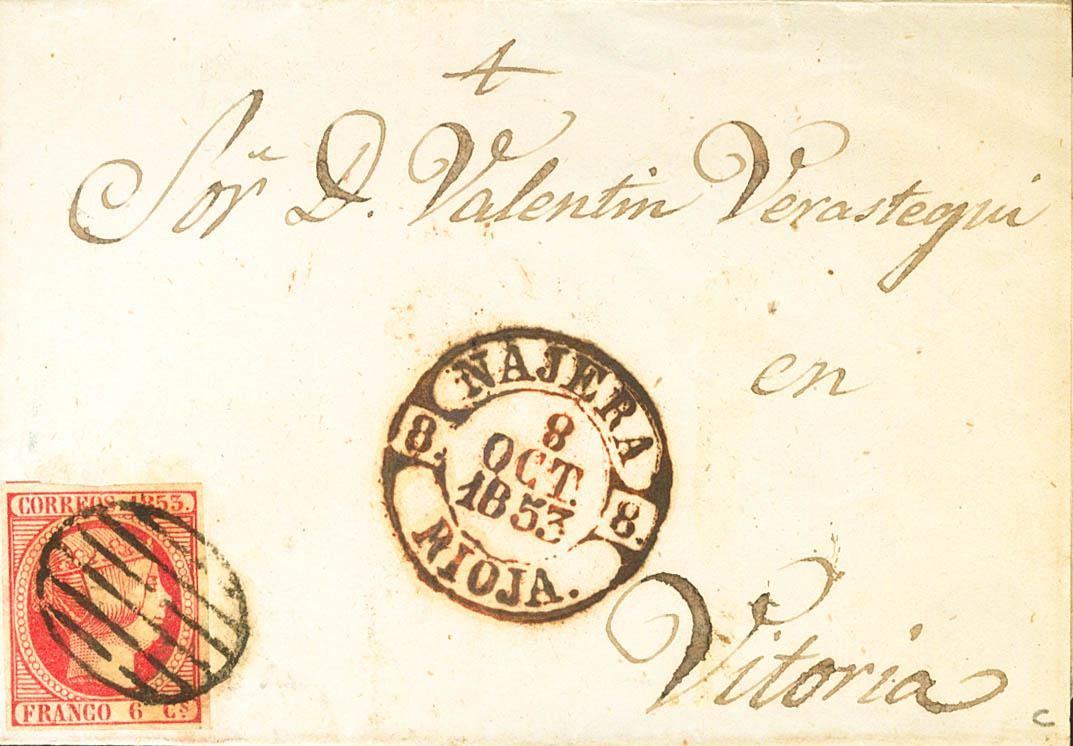 Sor D. Valentin Verastegui
en
Vitoria
NAJERA
8. 8
OCT.
1853 8.
RIOJA.
CORREOS 1853.
FRANCO 6 Cs
C